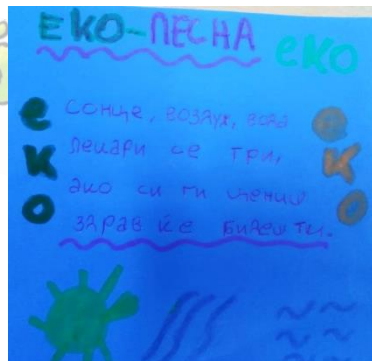 ЕКО-ПЕСНА
еко
е К О
сонце, воздух, вода
лекари се три,
ако си ги цениш
здрав ќе бидеш ти.
е К О